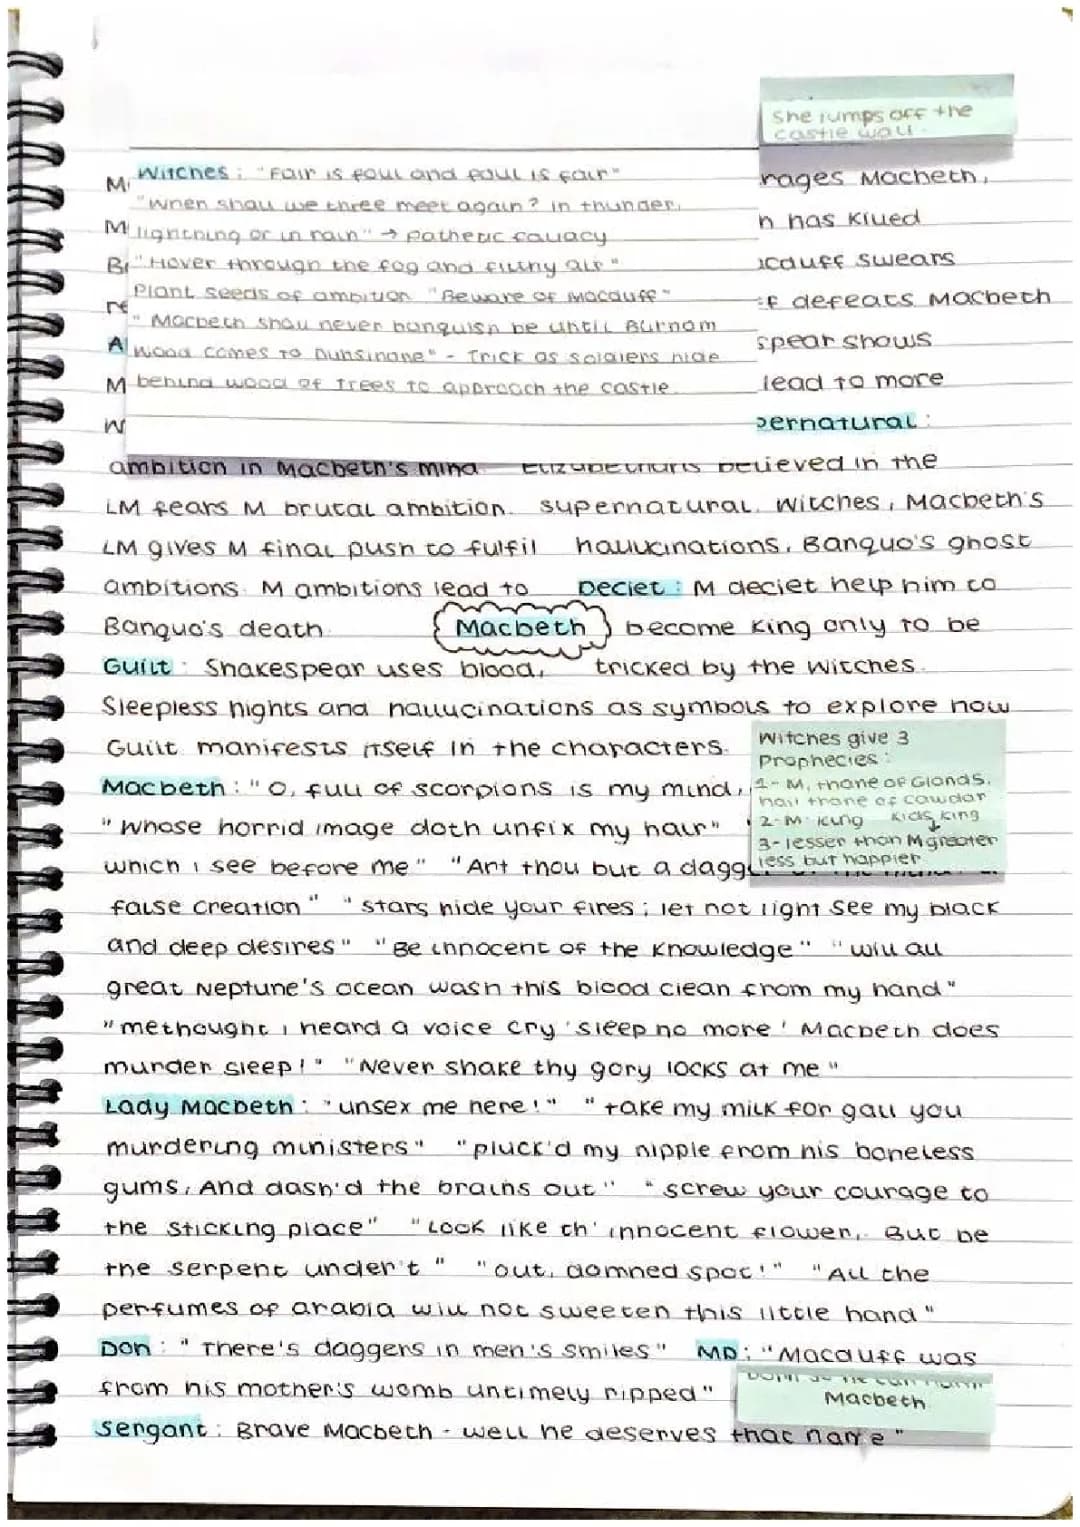 She jumps off the
castle wall.
Witches: "Fair is foul and foul is fair"
"When shall we three meet again? in thunder,
lightning or in rain" → pathetic fallacy
"Hover through the fog and filthy air"
Plant seeds of ambition "Beware of Macduff"
"Macbeth shall never banquish be until Burnam
Wood comes to Dunsinane" - Trick as soldiers hide
behind wood of trees to approach the castle.
rages Macbeth,
n has killed
acduff swears
ef defeats Macbeth
spear shows
lead to more
pernatural:
ambition in Macbeth's mind. Elizabethans believed in the
LM fears M brutal ambition. supernatural. Witches, Macbeth's
LM gives M final push to fulfil hallucinations, Banquo's ghost
ambitions. M ambitions lead to Deciet: M deciet help him to
Banquo's death. Macbeth become King only to be
Guilt: Shakespear uses blood, tricked by the Witches.
Sleepless nights and hallucinations as symbols to explore how
Guilt manifests itself in the characters.
Witches give 3
Prophecies:
1- M, thane of Glamis,
hail thane of Cawdor
2- M King Kids King
3- lesser than M greater
less but happier
Macbeth: "O, full of scorpions is my mind,
"Whose horrid image doth unfix my hair"
which i see before me" "Art thou but a dagg
false creation" "Stars hide your fires; let not light see my black
and deep desires" "Be innocent of the knowledge" "will all
great Neptune's ocean wash this blood clean from my hand"
"methought i heard a voice cry 'sleep no more' Macbeth does
murder sleep!" "Never shake thy gory locks at me"
Lady Macbeth: "unsex me here!" "take my milk for gall you
murdering ministers" "pluck'd my nipple from his boneless
gums, And dash'd the brains out" "screw your courage to
the sticking place" "Look like th' innocent flower, But be
the serpent under't" "out, damned spot!" "All the
perfumes of arabia will not sweeten this little hand"
Don: "There's daggers in men's smiles" MD: "Macduff was
from his mother's womb untimely ripped"
Macbeth
Sergant: Brave Macbeth - well he deserves that name"